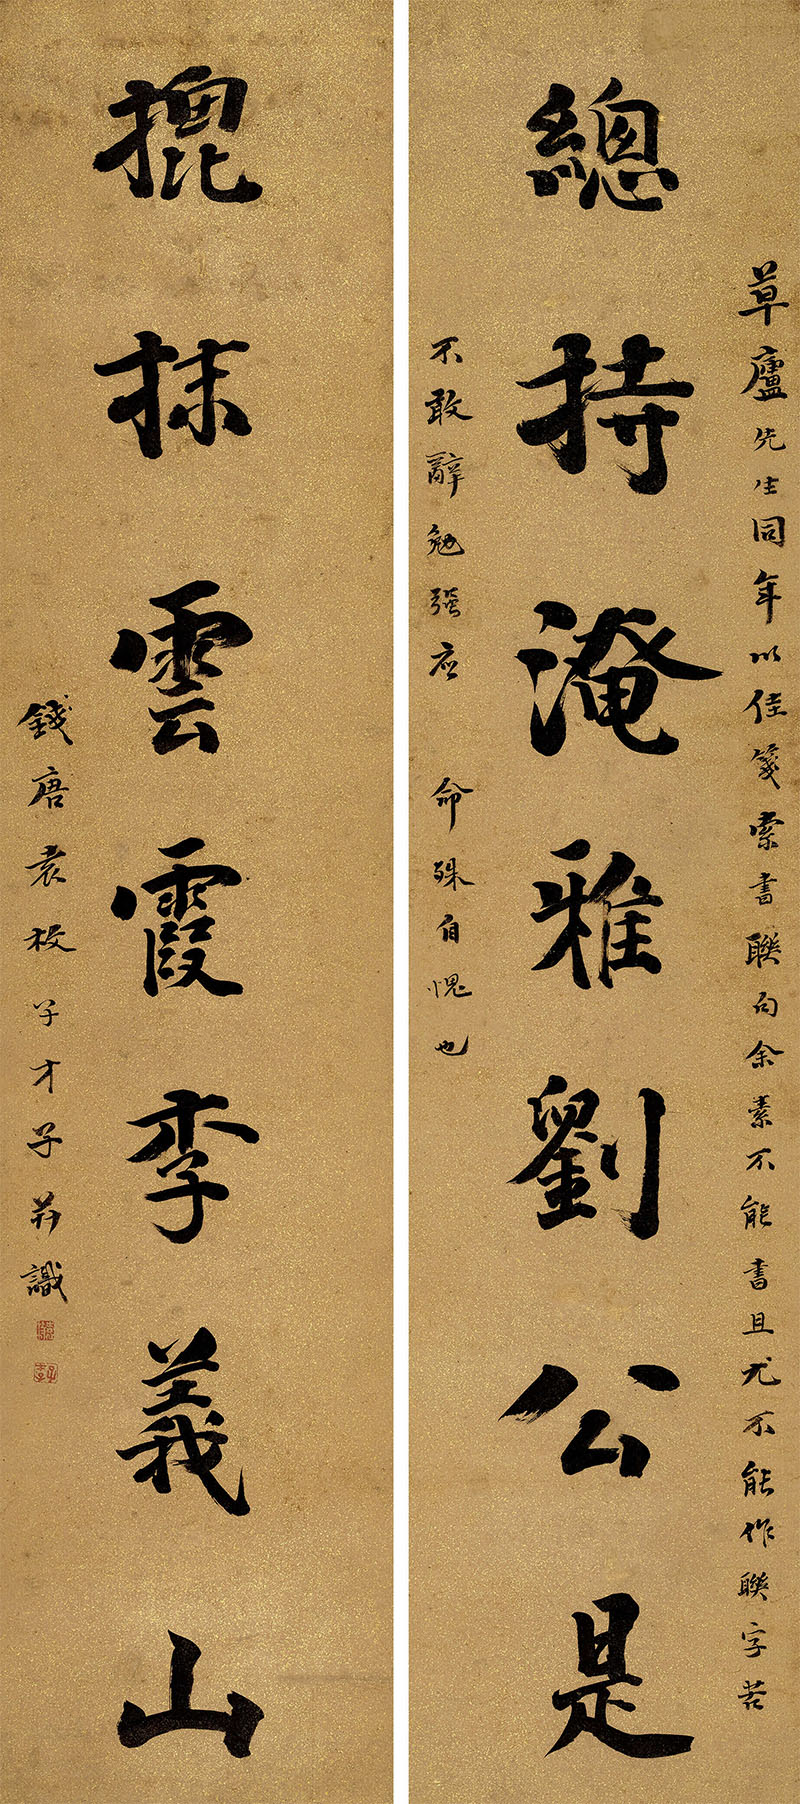 草廬先生同年以佳箋索書聯句余素不能書且尤不能作聯字
總持淹雅劉公是
不敢辭勉強应 命殊自愧也
抹雲霞李義山
錢唐袁枚子才子并識